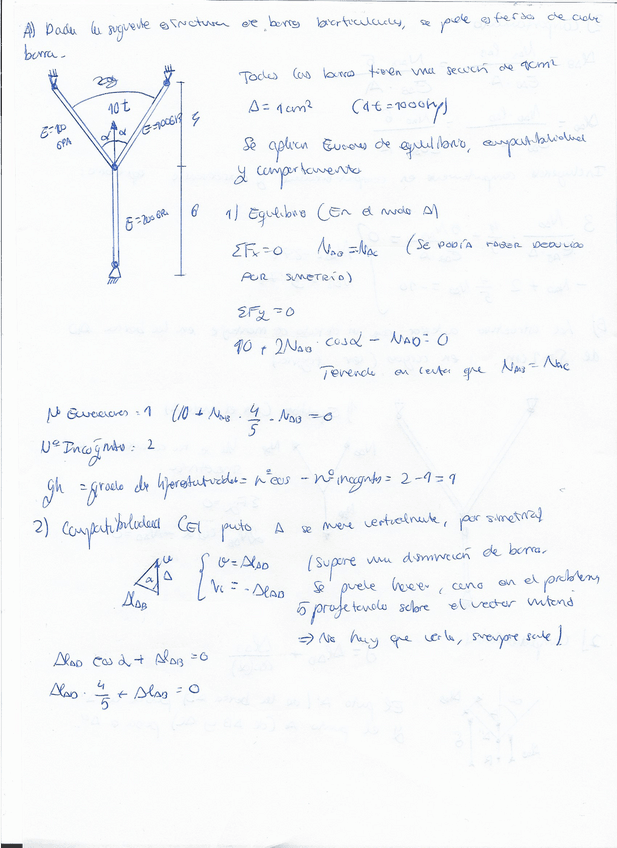 A) Dada la siguiente estructura de barras biarticuladas, se pide esfuerzo de cada
barra.
Todas las barras tienen una sección de 1cm²
10t
A = 1cm² (1t = 1000kg)
4
α α
E=100GPa
Se aplican Ecuaciones de equilibrio, compatibilidad
y comportamiento
6
E=200GPa
1) Equilibrio (En el nudo A)
ΣFx=0 NAB = NAC (Se podía haber deducido
por simetría)
ΣFy=0
10 + 2NAB · cosα - NAD = 0
Teniendo en cuenta que NAB = NAC
Nº Ecuaciones: 1 (10 + NAB · 4/5 - NAD = 0
Nº Incógnitas: 2
gh = grado de hiperestaticidad = nº ecs - nº incognitas = 2 - 1 = 1
2) Compatibilidad (El punto A se mueve verticalmente, por simetría)
v = ΔlAD (Supone una disminución de barra.
= -ΔlAD Se puede hacer, como en el problema
ΔlAB
5 proyectando sobre el vector
⇒ No hay que verlo, siempre sale)
ΔlAD cos α + ΔlAB = 0
ΔlAD · 4/5 + ΔlAB = 0